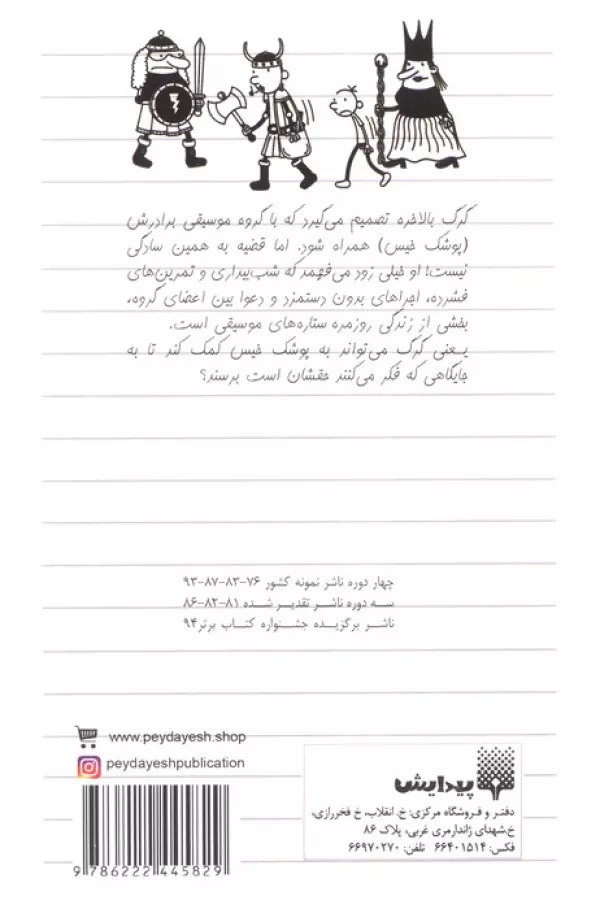 گرگ بالاخره تصمیم می‌گیرد که با گروه موسیقی برادرش
(پوشک خیس) همراه شود. اما قضیه به همین سادگی
نیست! او خیلی زود می‌فهمد که شب‌بیداری و تمرین‌های
فشرده، اجراهای بدون دستمزد و دعوا بین اعضای گروه،
بخشی از زندگی روزمره ستاره‌های موسیقی است.
یعنی گرگ می‌تواند به پوشک خیس کمک کند تا به
جایگاهی که فکر می‌کنند حقشان است برسند؟
چهار دوره ناشر نمونه کشور ۷۶-۸۳-۸۷-۹۳
سه دوره ناشر تقدیر شده ۸۱-۸۲-۸۶
ناشر برگزیده جشنواره کتاب برتر۹۴
www.peydayesh.shop
peydayeshpublication
پیدایش
دفتر و فروشگاه مرکزی: خ. انقلاب، خ فخررازی،
خ.شهدای ژاندارمری غربی، پلاک ۸۶
فکس: ۶۶۴۰۱۵۱۴ تلفن: ۶۶۹۷۰۲۷۰
9 786222 445829